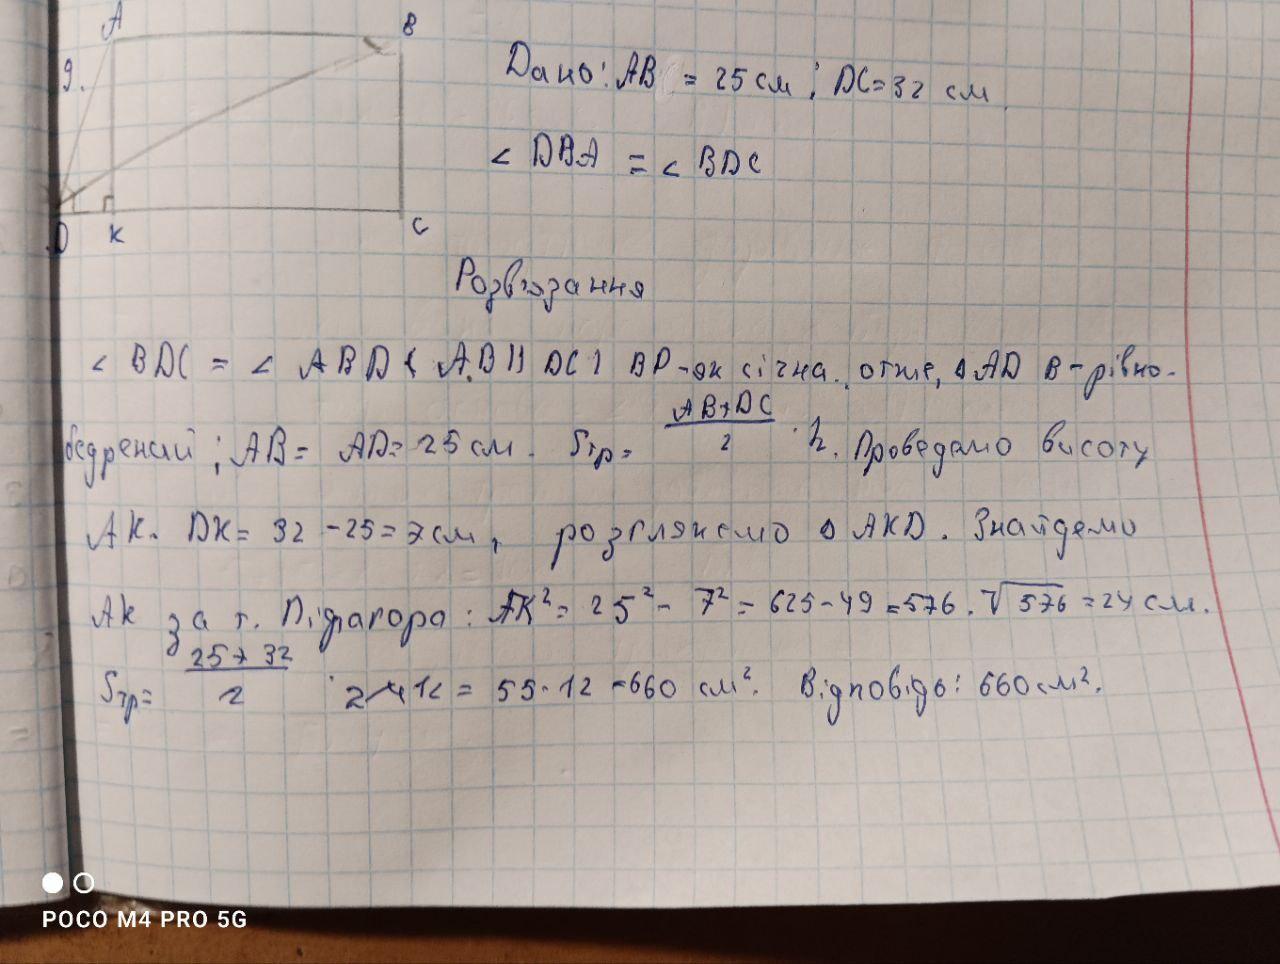 A B
9.
D K C
Дано: AB = 25 см ; DC = 32 см
∠ DBA = ∠ BDC
Розвʼязання
∠ BDC = ∠ ABD ( AB || DC ) BD - як січна. отже, Δ ADB - рівно-
бедрений ; AB = AD = 25 см. Sтр = (AB + DC)/2 · h. Проведемо висоту
AK. DK = 32 - 25 = 7 см, розглянемо Δ AKD. Знайдемо
AK за т. Піфагора : AK² = 25² - 7² = 625 - 49 = 576. √576 = 24 см.
Sтр = (25 + 32)/2 · 24 12 = 55 · 12 = 660 см². Відповідь: 660 см².
POCO M4 PRO 5G